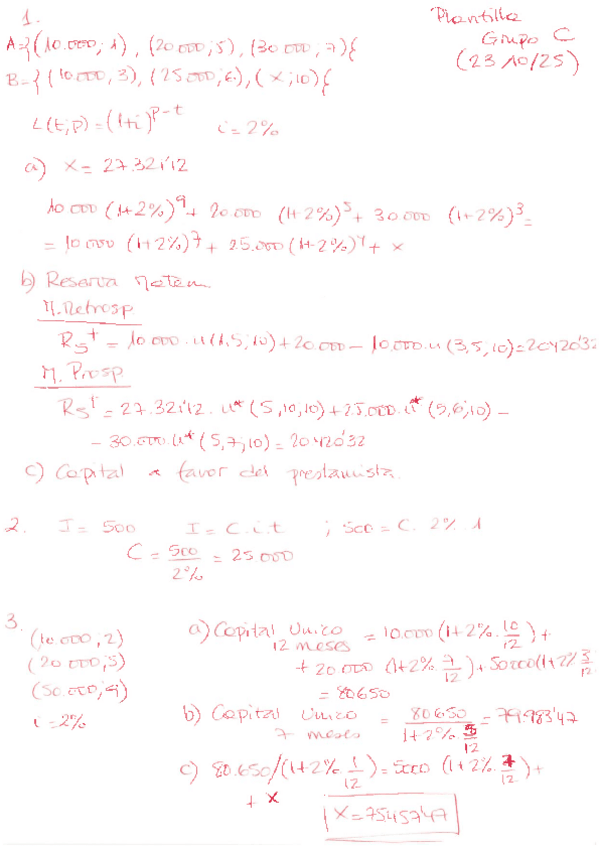 1.
Plantilla
Grupo C
(23/10/25)
A={(10.000;1), (20.000;5), (30.000,7)}
B={(10.000,3), (25.000;6), (x;10)}
L(t;p)=(1+i)^{p-t} i=2%
a) X= 27.321'12
10.000 (1+2%)^9 + 20.000 (1+2%)^5 + 30.000 (1+2%)^3 =
= 10.000 (1+2%)^7 + 25.000 (1+2%)^4 + x
b) Reserva Matem
M. Retrosp
R5^+ = 10.000 · u(1,5;10)+20.000 - 10.000.u(3,5,10)=20420'32
M. Prosp
R5^+ = 27.321'12. u*(5,10,10)+25.000.u*(5,6;10) -
- 30.000 u*(5,7;10) = 20420'32
c) Capital a favor del prestamista.
2. I = 500 I = C.i.t ; 500 = C. 2%. 1
C = 500/2% = 25000
3.
(10.000,2)
(20.000;5)
(50.000;9)
i=2%
a) Capital Unico 12 meses = 10.000 (1+2%. 10/12) +
+ 20.000 (1+2%. 7/12) + 50000(1+2% 3/12
= 80650
b) Capital Unico 7 meses = 80650/(1+2%. 5/12) = 79.983'47
c) 80.650/(1+2%. 1/12) = 5000 (1+2%. 7/12) +
+ x
X=75457'47